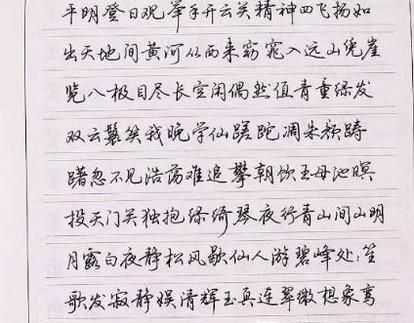 平明登日观举手开云关精神四飞扬如
出天地间黄河从西来窈窕入远山凭崖
览八极目尽长空闲偶然值青童绿发
双云鬟笑我晚学仙蹉跎凋朱颜踌
躇忽不见浩荡难追攀朝饮王母池暝
投天门关独抱绿绮琴夜行青山间山明
月露白夜静松风歇仙人游碧峰处处笙
歌发寂静娱清辉玉真连翠微想象鸾